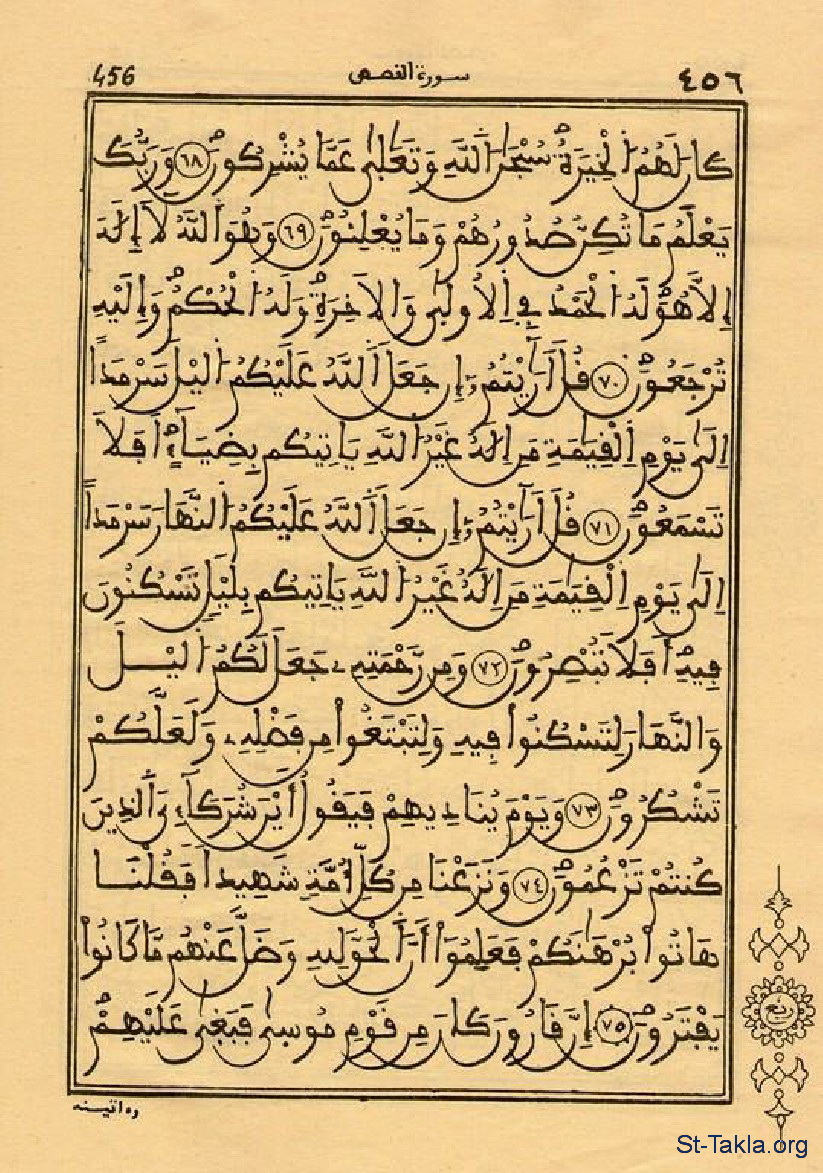 456 سورة القصص ٤٥٦
كَانَ لَهُمُ الْخِيَرَةُ سُبْحَٰنَ اَللَّهِ وَتَعَٰلَىٰ عَمَّا يُشْرِكُونَ ٦٨ وَرَبُّكَ
يَعْلَمُ مَا تُكِنُّ صُدُورُهُمْ وَمَا يُعْلِنُونَ ٦٩ وَهُوَ اَللَّهُ لَا إِلَٰهَ
إِلَّا هُوَ لَهُ الْحَمْدُ فِي اِلْأُولَىٰ وَالْأَخِرَةِ وَلَهُ الْحُكْمُ وَإِلَيْهِ
تُرْجَعُونَ ٧٠ قُلْ أَرَٰيْتُمُ إِن جَعَلَ اَللَّهُ عَلَيْكُمُ اُليْلَ سَرْمَداً
إِلَىٰ يَوْمِ اِلْقِيَٰمَةِ مَنِ اِلَٰهٌ غَيْرُ اُللَّهِ يَاتِيكُم بِضِيَآءٍ اَفَلَا
تَسْمَعُونَ ٧١ قُلْ أَرَٰيْتُمُ إِن جَعَلَ اَللَّهُ عَلَيْكُمُ اُلنَّهَارَ سَرْمَداً
إِلَىٰ يَوْمِ اِلْقِيَٰمَةِ مَنِ اِلَٰهٌ غَيْرُ اُللَّهِ يَاتِيكُم بِلَيْلٍ تَسْكُنُونَ
فِيهِ أَفَلَا تُبْصِرُونَ ٧٢ وَمِن رَّحْمَتِهِ جَعَلَ لَكُمُ اُليْلَ
وَالنَّهَارَ لِتَسْكُنُواْ فِيهِ وَلِتَبْتَغُواْ مِن فَضْلِهِ وَلَعَلَّكُمْ
تَشْكُرُونَ ٧٣ وَيَوْمَ يُنَادِيهِمْ فَيَقُولُ أَيْنَ شُرَكَآءِيَ اَلذِينَ
كُنتُمْ تَزْعُمُونَ ٧٤ وَنَزَعْنَا مِن كُلِّ أُمَّةٍ شَهِيداً فَقُلْنَا
هَاتُواْ بُرْهَٰنَكُمْ فَعَلِمُوٓاْ أَنَّ اَلْحَقَّ لِلهِ وَضَلَّ عَنْهُم مَّا كَانُواْ
يَفْتَرُونَ ٧٥ إِنَّ قَٰرُونَ كَانَ مِن قَوْمِ مُوسِىٰ فَبَغِىٰ عَلَيْهِمْ
ربع
St-Takla.org